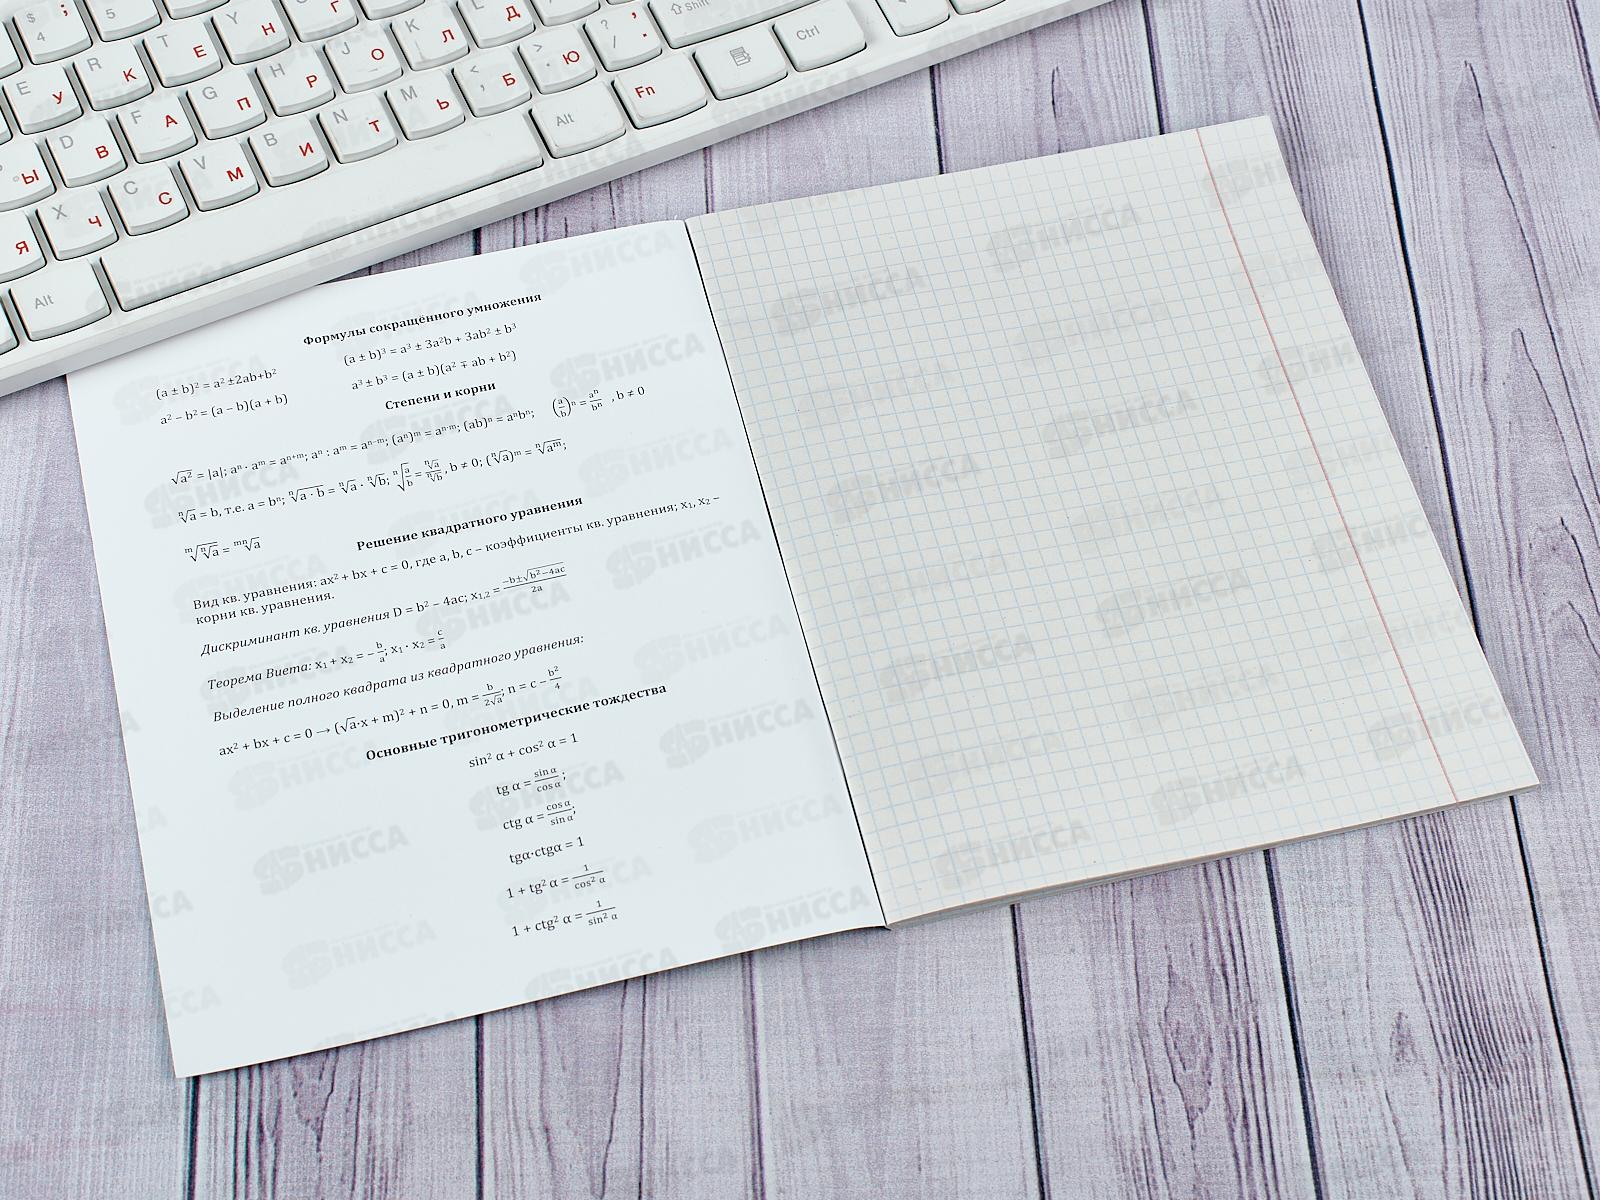 $ ; 4
5
T Е
Y Н
Г
K Л
Д
? / , .
⇧ Shift
E У
R К
H Р
J О
< , Б
> . Ю
Fn
Ctrl
D В
F А
G П
N Т
M Ь
Alt
Ы
C С
V М
B И
Я
X Ч
Alt
Формулы сокращённого умножения
(a ± b)² = a² ±2ab+b² (a ± b)³ = a³ ± 3a²b + 3ab² ± b³
a² − b² = (a − b)(a + b) a³ ± b³ = (a ± b)(a² ∓ ab + b²)
Степени и корни
√a² = |a|; aⁿ · aᵐ = aⁿ⁺ᵐ; aⁿ : aᵐ = aⁿ⁻ᵐ; (aⁿ)ᵐ = aⁿ·ᵐ; (ab)ⁿ = aⁿbⁿ; (a/b)ⁿ = aⁿ/bⁿ , b ≠ 0
ⁿ√a = b, т.е. a = bⁿ; ⁿ√(a · b) = ⁿ√a · ⁿ√b; ⁿ√(a/b) = ⁿ√a/ⁿ√b, b ≠ 0; (ⁿ√a)ᵐ = ⁿ√aᵐ;
ᵐ√(ⁿ√a) = ᵐⁿ√a
Решение квадратного уравнения
Вид кв. уравнения: ax² + bx + c = 0, где a, b, c – коэффициенты кв. уравнения; x₁, x₂ –
корни кв. уравнения.
Дискриминант кв. уравнения D = b² − 4ac; x₁,₂ = (−b±√(b²−4ac))/2a
Теорема Виета: x₁ + x₂ = − b/a; x₁ · x₂ = c/a
Выделение полного квадрата из квадратного уравнения:
ax² + bx + c = 0 → (√a·x + m)² + n = 0, m = b/(2√a); n = c − b²/4
Основные тригонометрические тождества
sin² α + cos² α = 1
tg α = sin α/cos α;
ctg α = cos α/sin α;
tgα·ctgα = 1
1 + tg² α = 1/cos² α
1 + ctg² α = 1/sin² α
НИССА